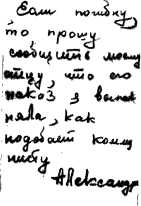 Если погибну,
то прошу
сообщить моему
отцу, что его
наказ я выпол
няла, как
подобает комму
нисту
Александр